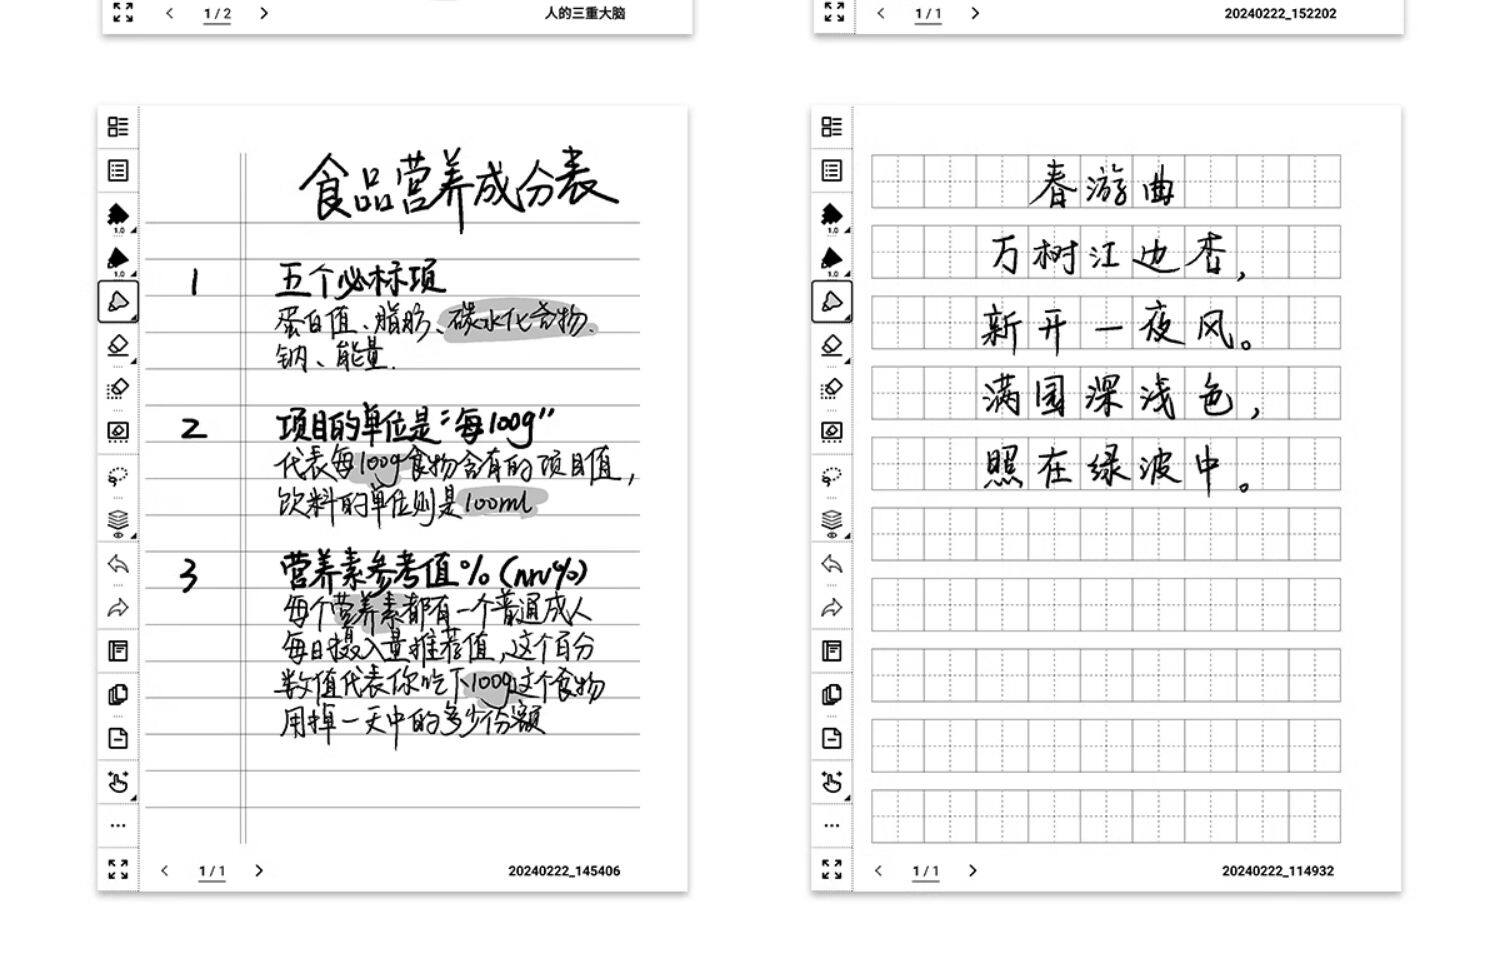 1 / 2
人的三重大脑
1 / 1
20240222_152202
食品营养成分表
1 五个必标项
蛋白值、脂肪、碳水化合物、
钠、能量.
2 项目的单位是“每100g”
代表每100g食物含有的项目值，
饮料的单位则是100ml
3 营养素参考值%(nrv%)
每个营养素都有一个普通成人
每日摄入量推荐值,这个百分
数值代表你吃下100g这个食物
用掉一天中的多少份额
1.0
1.0
1 / 1
20240222_145406
春游曲
万树江边杏，
新开一夜风。
满园深浅色，
照在绿波中。
1.0
1.0
1 / 1
20240222_114932